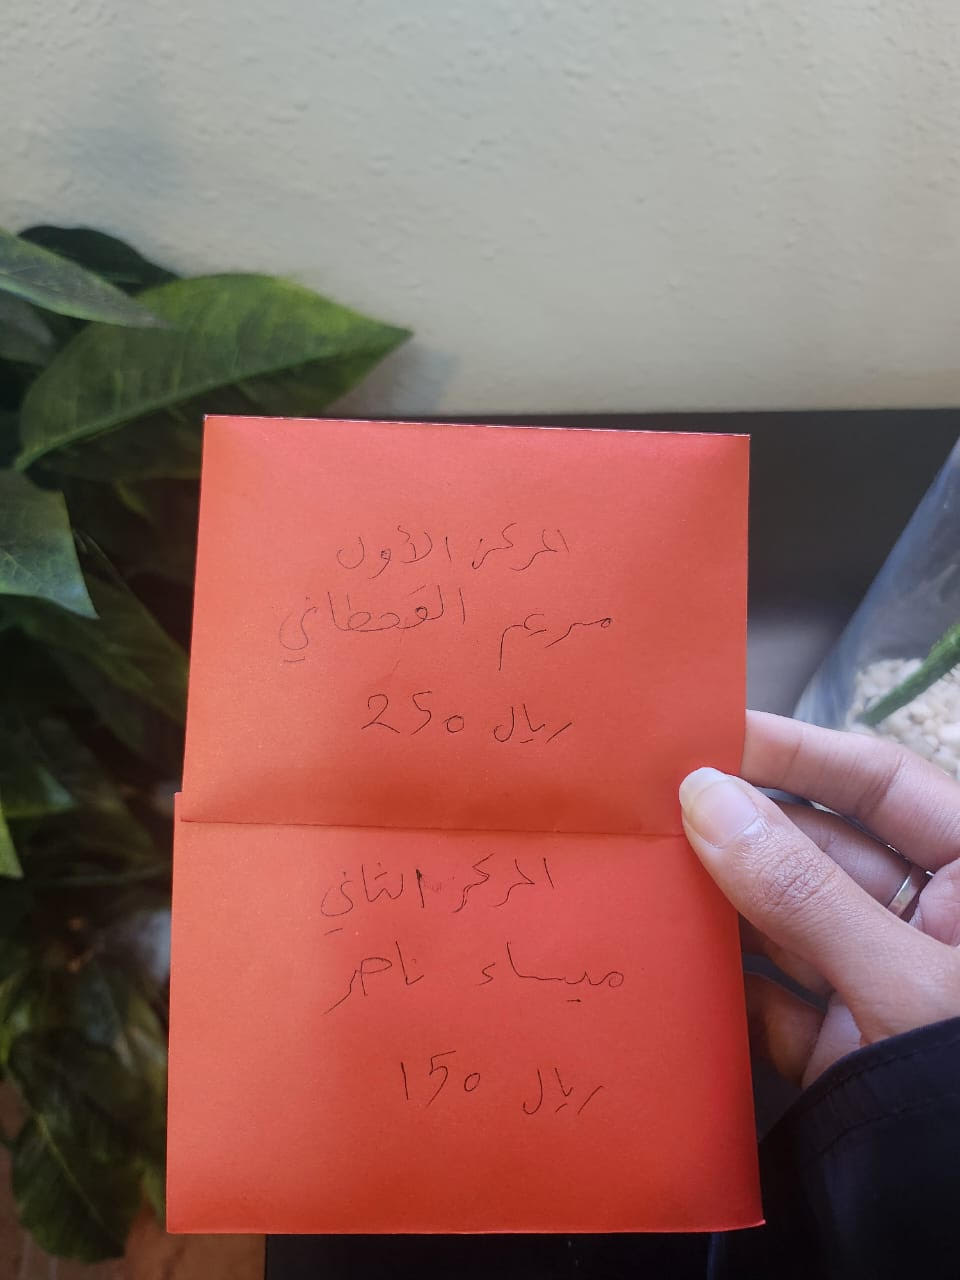 المركز الأول
مريم القحطاني
ريال 250
المركز الثاني
ميساء ناصر
ريال 150